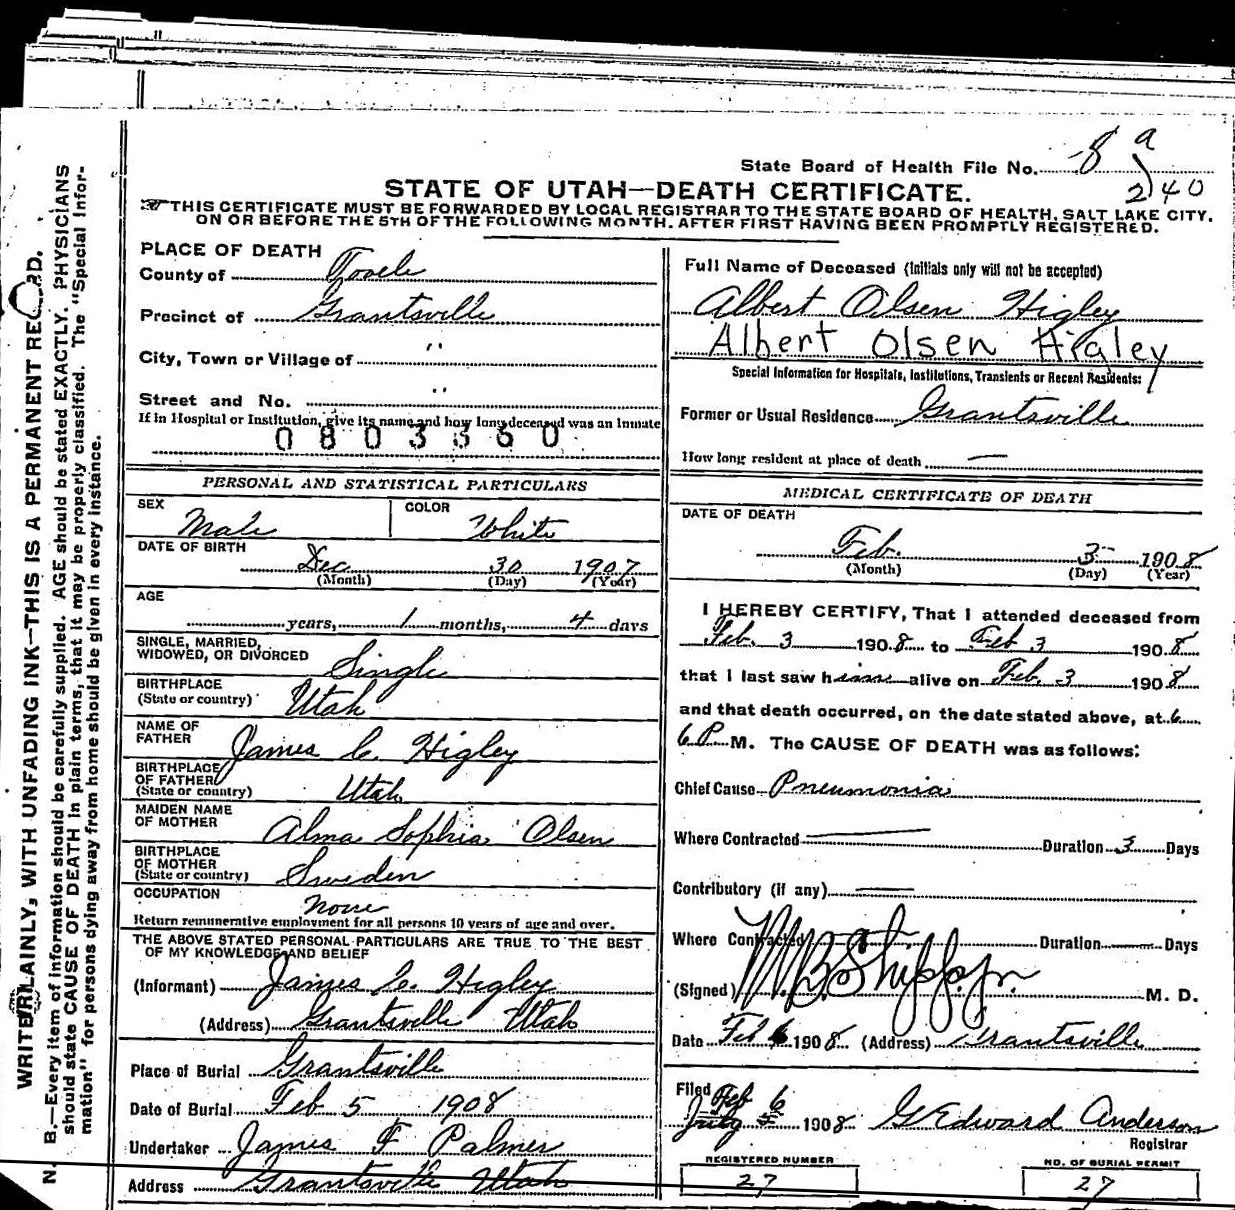 State Board of Health File No. 8 a
240
STATE OF UTAH—DEATH CERTIFICATE.
THIS CERTIFICATE MUST BE FORWARDED BY LOCAL REGISTRAR TO THE STATE BOARD OF HEALTH, SALT LAKE CITY,
ON OR BEFORE THE 5TH OF THE FOLLOWING MONTH, AFTER FIRST HAVING BEEN PROMPTLY REGISTERED.
PLACE OF DEATH
County of Tooele
Precinct of Grantsville
City, Town or Village of "
Street and No. "
If in Hospital or Institution, give its name and how long deceased was an Inmate
0803360
PERSONAL AND STATISTICAL PARTICULARS
SEX Male COLOR White
DATE OF BIRTH Dec 30 1907
(Month) (Day) (Year)
AGE
years, 1 months, 4 days
SINGLE, MARRIED,
WIDOWED, OR DIVORCED Single
BIRTHPLACE
(State or country) Utah
NAME OF
FATHER James C. Higley
BIRTHPLACE
OF FATHER
(State or country) Utah
MAIDEN NAME
OF MOTHER Alma Sophia Olsen
BIRTHPLACE
OF MOTHER
(State or country) Sweden
OCCUPATION None
Return remunerative employment for all persons 10 years of age and over.
THE ABOVE STATED PERSONAL PARTICULARS ARE TRUE TO THE BEST
OF MY KNOWLEDGE AND BELIEF
(Informant) James C. Higley
(Address) Grantsville Utah
Place of Burial Grantsville
Date of Burial Feb 5 1908
Undertaker James F Palmer
Address Grantsville Utah
Full Name of Deceased (Initials only will not be accepted)
Albert Olsen Higley
Albert Olsen Higley
Special Information for Hospitals, Institutions, Transients or Recent Residents:
Former or Usual Residence Grantsville
How long resident at place of death —
MEDICAL CERTIFICATE OF DEATH
DATE OF DEATH
Feb. 3 1908
(Month) (Day) (Year)
I HEREBY CERTIFY, That I attended deceased from
Feb. 3 1908 to Feb 3 1908
that I last saw him alive on Feb. 3 1908
and that death occurred, on the date stated above, at 6
6 P. M. The CAUSE OF DEATH was as follows:
Chief Cause Pneumonia
Where Contracted — Duration 3 Days
Contributory (if any) —
Where Contracted Duration — Days
(Signed) Shipp Jr. M. D.
Date Feb 6 1908 (Address) Grantsville
Filed Feb 6
July 1908 G Edward Anderson
Registrar
REGISTERED NUMBER
27
NO. OF BURIAL PERMIT
27
WRITE PLAINLY, WITH UNFADING INK—THIS IS A PERMANENT RECORD.
N. B.—Every item of information should be carefully supplied. AGE should be stated EXACTLY. PHYSICIANS
should state CAUSE OF DEATH in plain terms, that it may be properly classified. The "Special Infor-
mation" for persons dying away from home should be given in every instance.